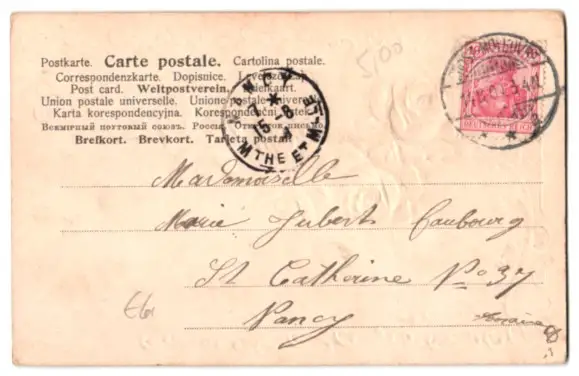 5,00
Postkarte. Carte postale. Cartolina postale.
Correspondenzkarte. Dopisnice.
Post card. Weltpostverein.
Union postale universelle. Unione postale univer
Karta korespondencyjna. Korespondenční
Всемірный почтовый союзъ. Россія.
Brefkort. Brevkort. Tarjeta postal
NANCY
15-8
MTHE ET MLLE
DEUTSCHES REICH
Mademoiselle
Marie Hubert Faubourg
St Catherine No 37
Nancy